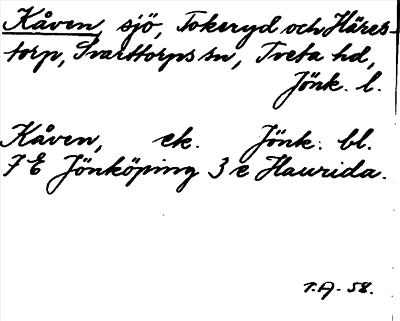 Kåven, sjö, Tokeryd och Häres-
torp, Svarttorps sn, Tveta hd,
Jönk. l.
Kåven, ek. Jönk. bl.
7 E Jönköping 3 e Haurida.
T.A. 58.